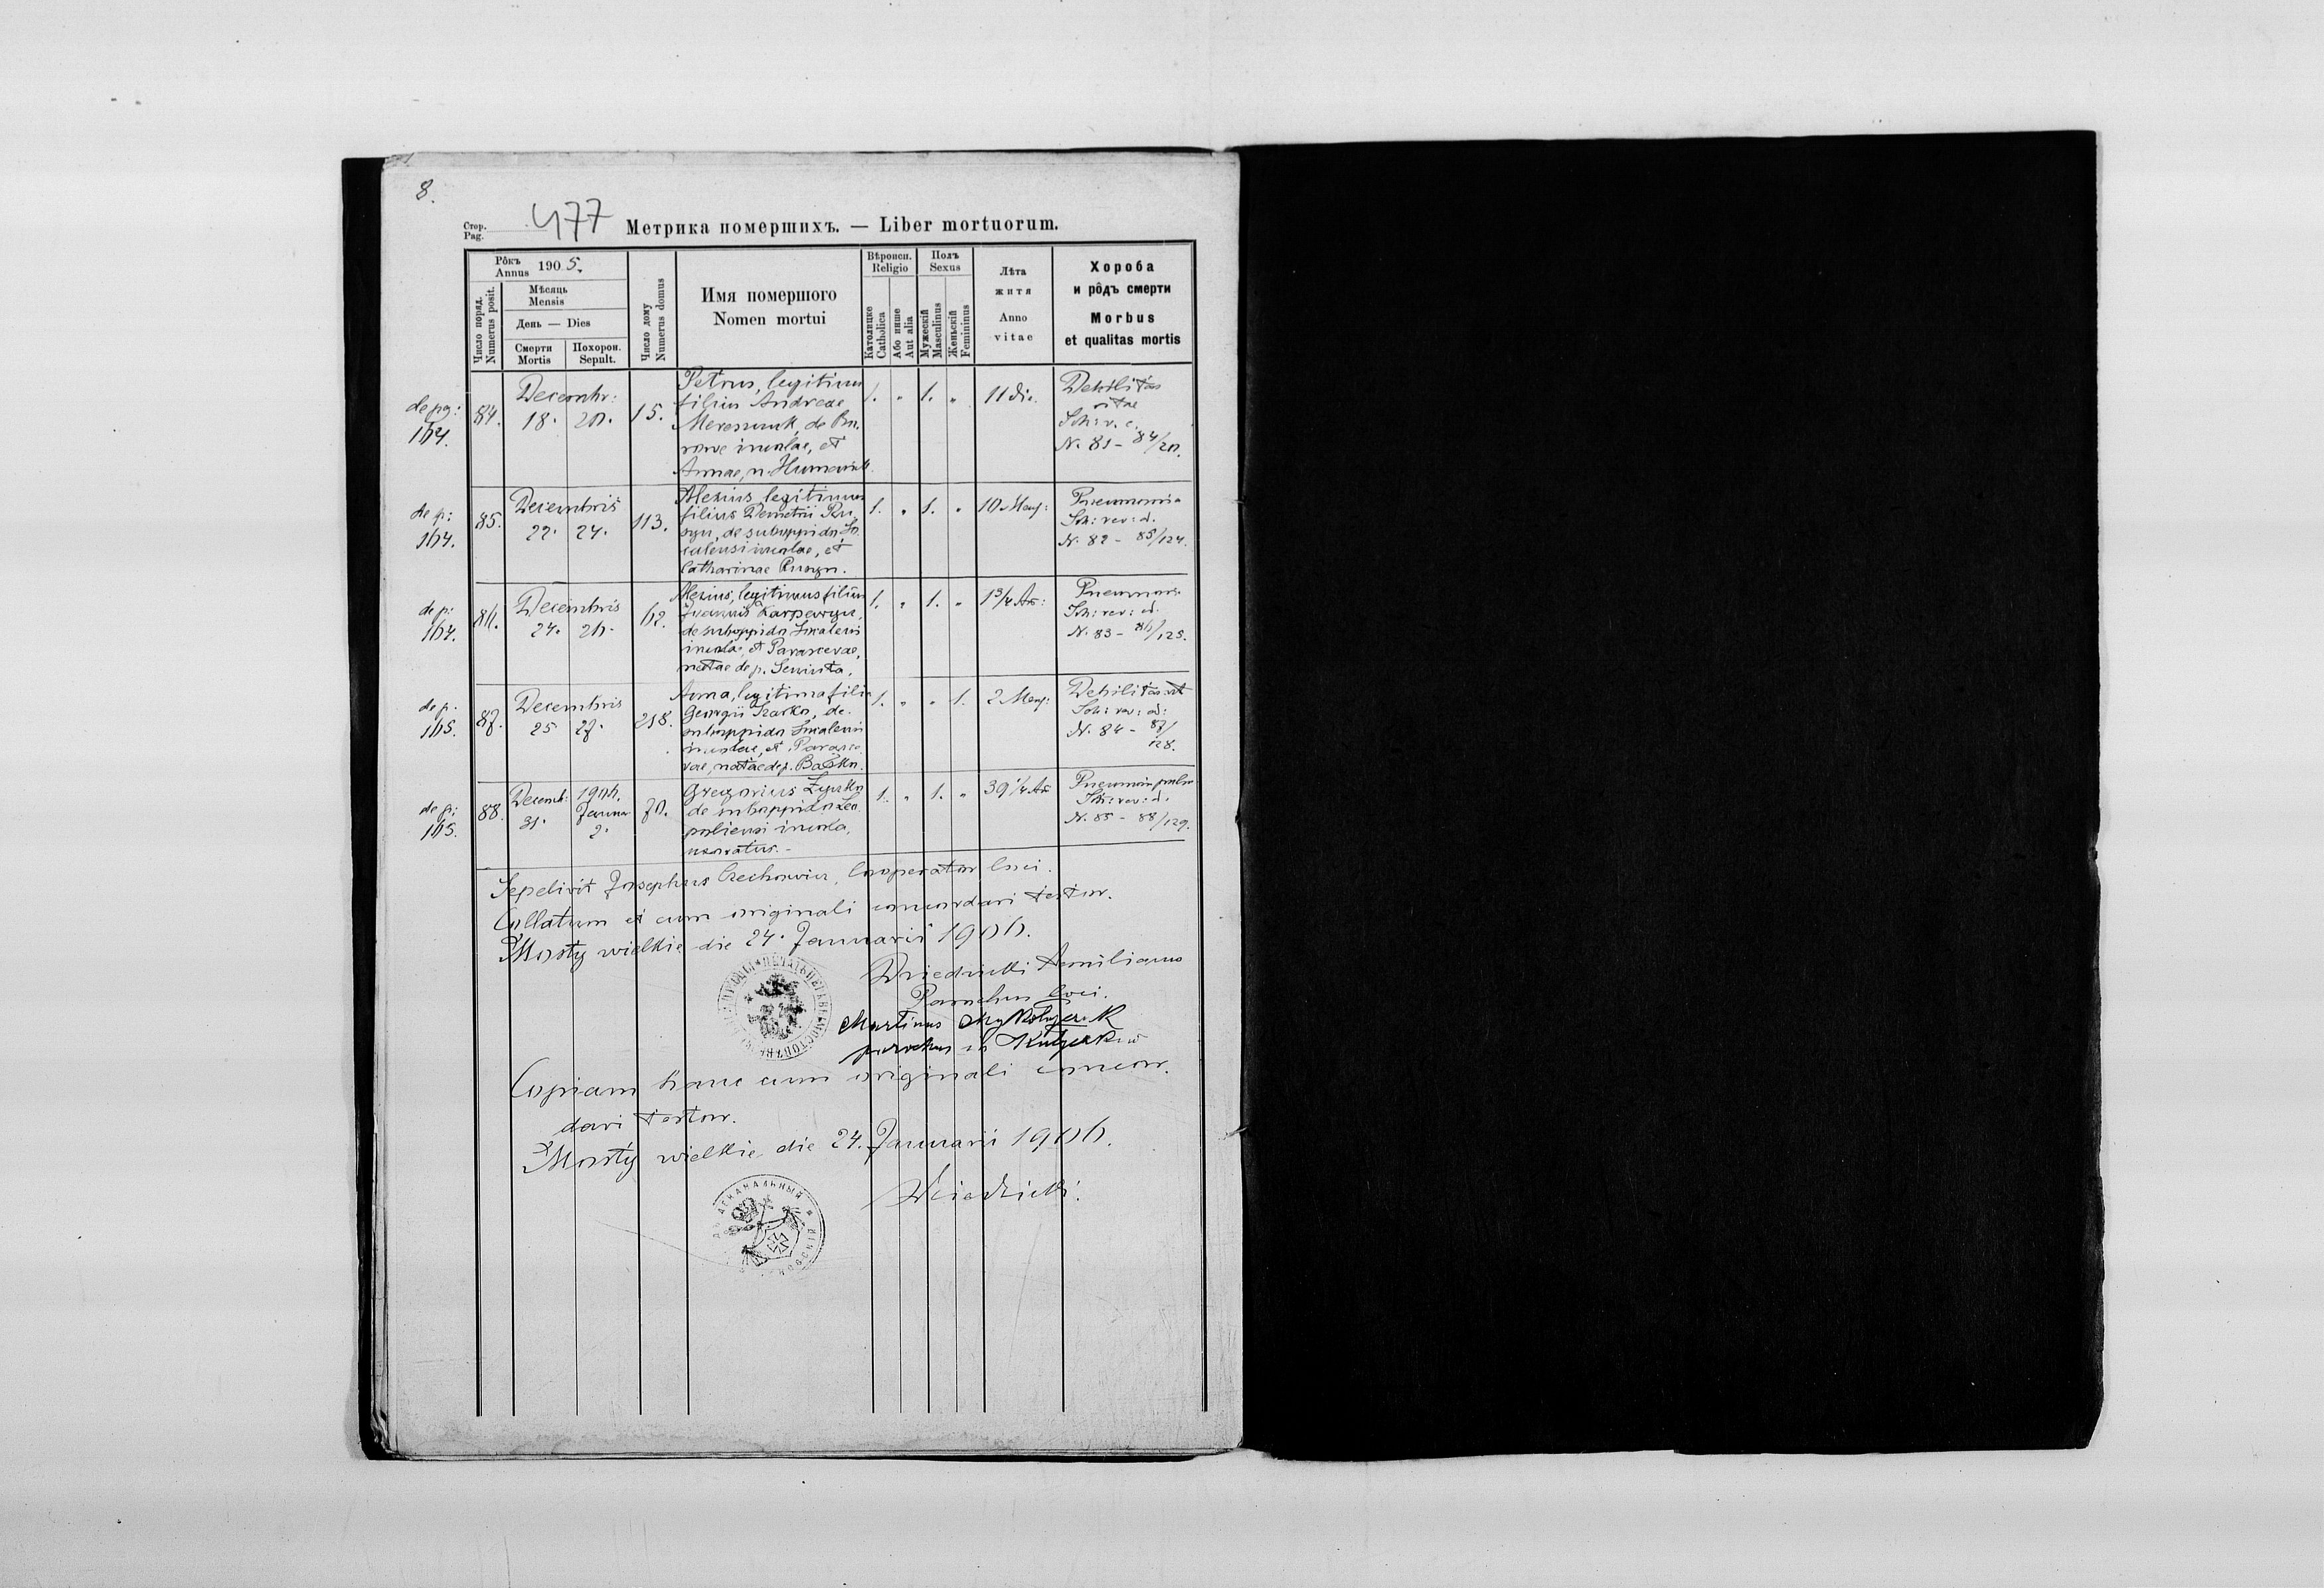 8.
Стор.
Pag.
477
Метрика помершихъ. — Liber mortuorum.
Рôкъ
Annus
1905.
Число поряд.
Numerus posit.
Мѣсяць
Mensis
День — Dies
Смерти
Mortis
Похорон.
Sepult.
Число дому
Numerus domus
Имя помершого
Nomen mortui
Вѣроисп.
Religio
Католицке
Catholica
Або инше
Aut alia
Полъ
Sexus
Мужескій
Masculinus
Женьскій
Femininus
Лѣта
житя
Anno
vitae
Хороба
и рôдъ смерти
Morbus
et qualitas mortis
de pg:
164.
84.
Decembr:
18. 20.
15.
Petrus, legitimus
filius Andreae
de
incolae, et
Annae, n.
1. „ 1. „
11 die.
Debilitas
vitae
Sch: v. c.
N. 81 - 84/20.
de p:
164.
85.
Decembris
22. 24.
113.
Alexius, legitimus
filius Demetrii Ru
syn, de suboppido So
calensi incolae, et
Catharinae Rusyn.
1. „ 1. „
10 Mens:
Pneumonia
Sch: rev: d.
N. 82 - 85/124.
de p:
164.
86.
Decembris
24. 26.
62.
Alexius, legitimus filius
Joannis
de suboppido Socalensi
incolae, et Parascevae,
natae de p.
1. „ 1. „
1 3/4 An:
Sch: rev: d.
N. 83 - 86/125.
de p:
165.
87.
Decembris
25 27.
218.
Anna, legitima filia
Georgii de
suboppido Socalensi
incolae, et Parasce
vae, natae de p. Baśko.
1. „ „ 1.
2 Mens:
Debilitas vit
Sch: rev: d:
N. 84 - 87/
128.
de p:
165.
88.
Decemb: 1906.
31. Januar
2.
70.
Gregorius
de suboppido Leo
poliensi incola,
uxoratus. -
1. „ 1. „
39 1/4 An
Sch: rev: d.
N. 85 - 88/129.
Sepelivit Josephus Czechowicz, Cooperator loci.
Collatum et cum originali concordari testor.
Mosty wielkie die 24. Januarii 1906.
Aemilianus
Parochus loci.
Martinus
parochus in
Copiam hanc cum originali concor.
dari testor.
Mosty wielkie die 24. Januarii 1906.